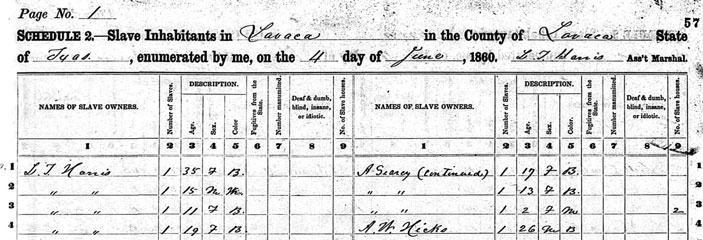 Page No. 1
57
SCHEDULE 2.—Slave Inhabitants in Lavaca in the County of Lavaca State
of Texas, enumerated by me, on the 4 day of June, 1860. L. T. Harris Ass't Marshal.
NAMES OF SLAVE OWNERS. Number of Slaves. DESCRIPTION. Age. Sex. Color. Fugitives from the State. Number manumitted. Deaf & dumb, blind, insane, or idiotic. No. of Slave houses. NAMES OF SLAVE OWNERS. Number of Slaves. DESCRIPTION. Age. Sex. Color. Fugitives from the State. Number manumitted. Deaf & dumb, blind, insane, or idiotic. No. of Slave houses.
1 2 3 4 5 6 7 8 9 1 2 3 4 5 6 7 8 9
1 L. T. Harris 1 35 F B. A Searcy (continued) 1 19 F B. 1
2 " " 1 15 M " " 1 13 F B. 2
3 " " 1 11 F B. " " 1 2 F M 2 3
4 " " 1 19 F B. A. W. Hicks 1 26 M B 4